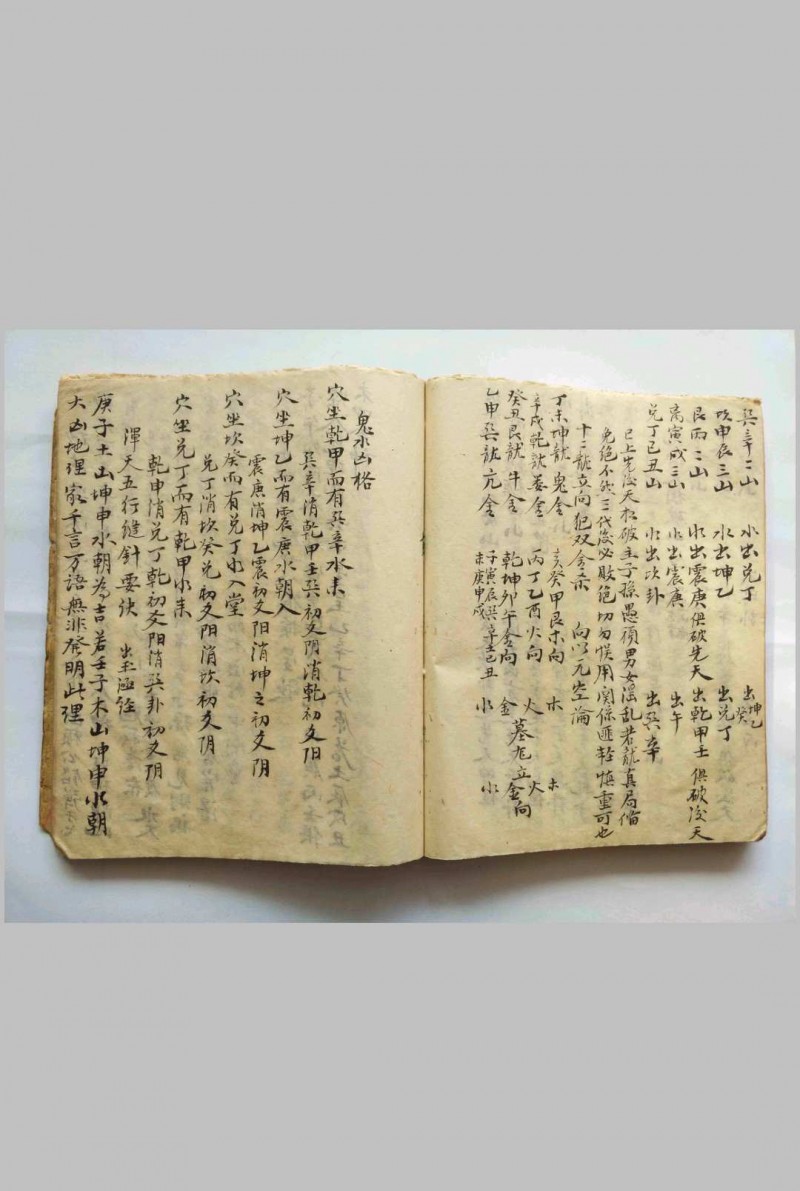 巽辛二山　水出兑丁　出坤乙癸
坎申辰三山　水出坤乙　出兑丁
艮丙二山　水出震庚俱破先天　出乾甲壬　俱破後天
离寅戌三山　水出震庚　出午
兑丁巳丑山　水出坎卦　出巽辛
已上先後天相破主子孫愚頑男女淫乱若龍真局偹
免绝不然三代後必敗绝切勿悮用関係匪轻慎重可也
十二龍立向犯双金杀　向以元空論
丁未坤龍鬼金　亥癸甲艮木向　木　木
辛戌乾龍娄金　丙丁乙酉火向　火　火
癸丑艮龍牛金　乾坤卯午金向　金　墓龙立金向
乙申巽龍亢金　子寅辰巽辛壬己丑未庚申戌　水　水
鬼水凶格
穴坐乾甲而有巽辛水来
巽辛消乾甲壬巽初爻阴消乾初爻阳
穴坐坤乙而有震庚水朝入
震庚消坤乙震初爻阳消坤之初爻阴
穴坐坎癸而有兑丁水入堂
兑丁消坎癸兑初爻阳消坎初爻阴
穴坐兑丁而有乾甲水来
乾甲消兑丁乾初爻阳消巽卦初爻阴
渾天五行缝針要诀　出玉函经
庚子土山坤申水朝為吉若壬子木山坤申水朝
大凶地理家千言万語無非發明此理